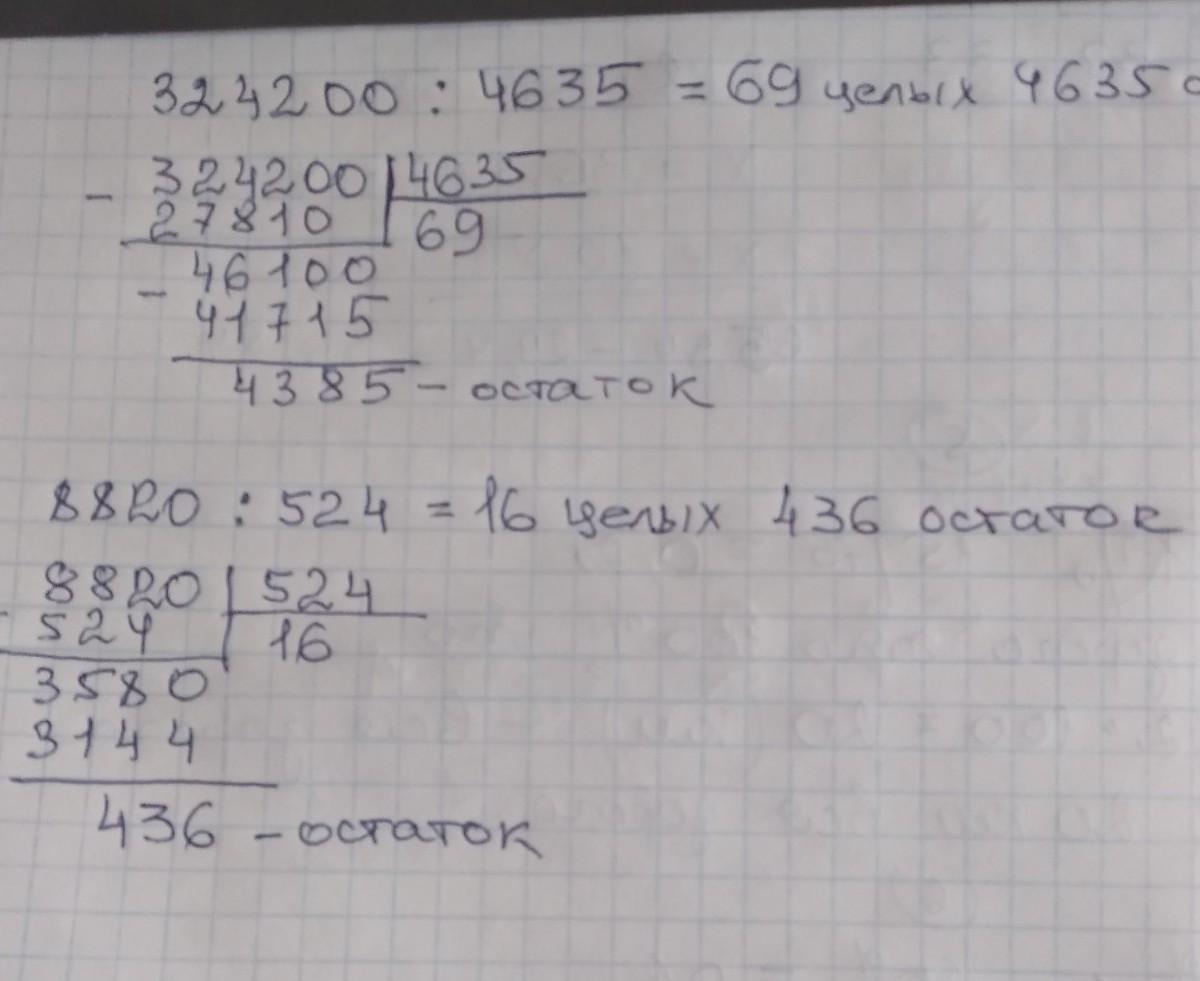 324200 : 4635 = 69 целых 4635 о
- 324200 | 4635
27810 | 69
- 46100
41715
4385 - остаток
8820 : 524 = 16 целых 436 остаток
- 8820 | 524
524 | 16
3580
3144
436 - остаток